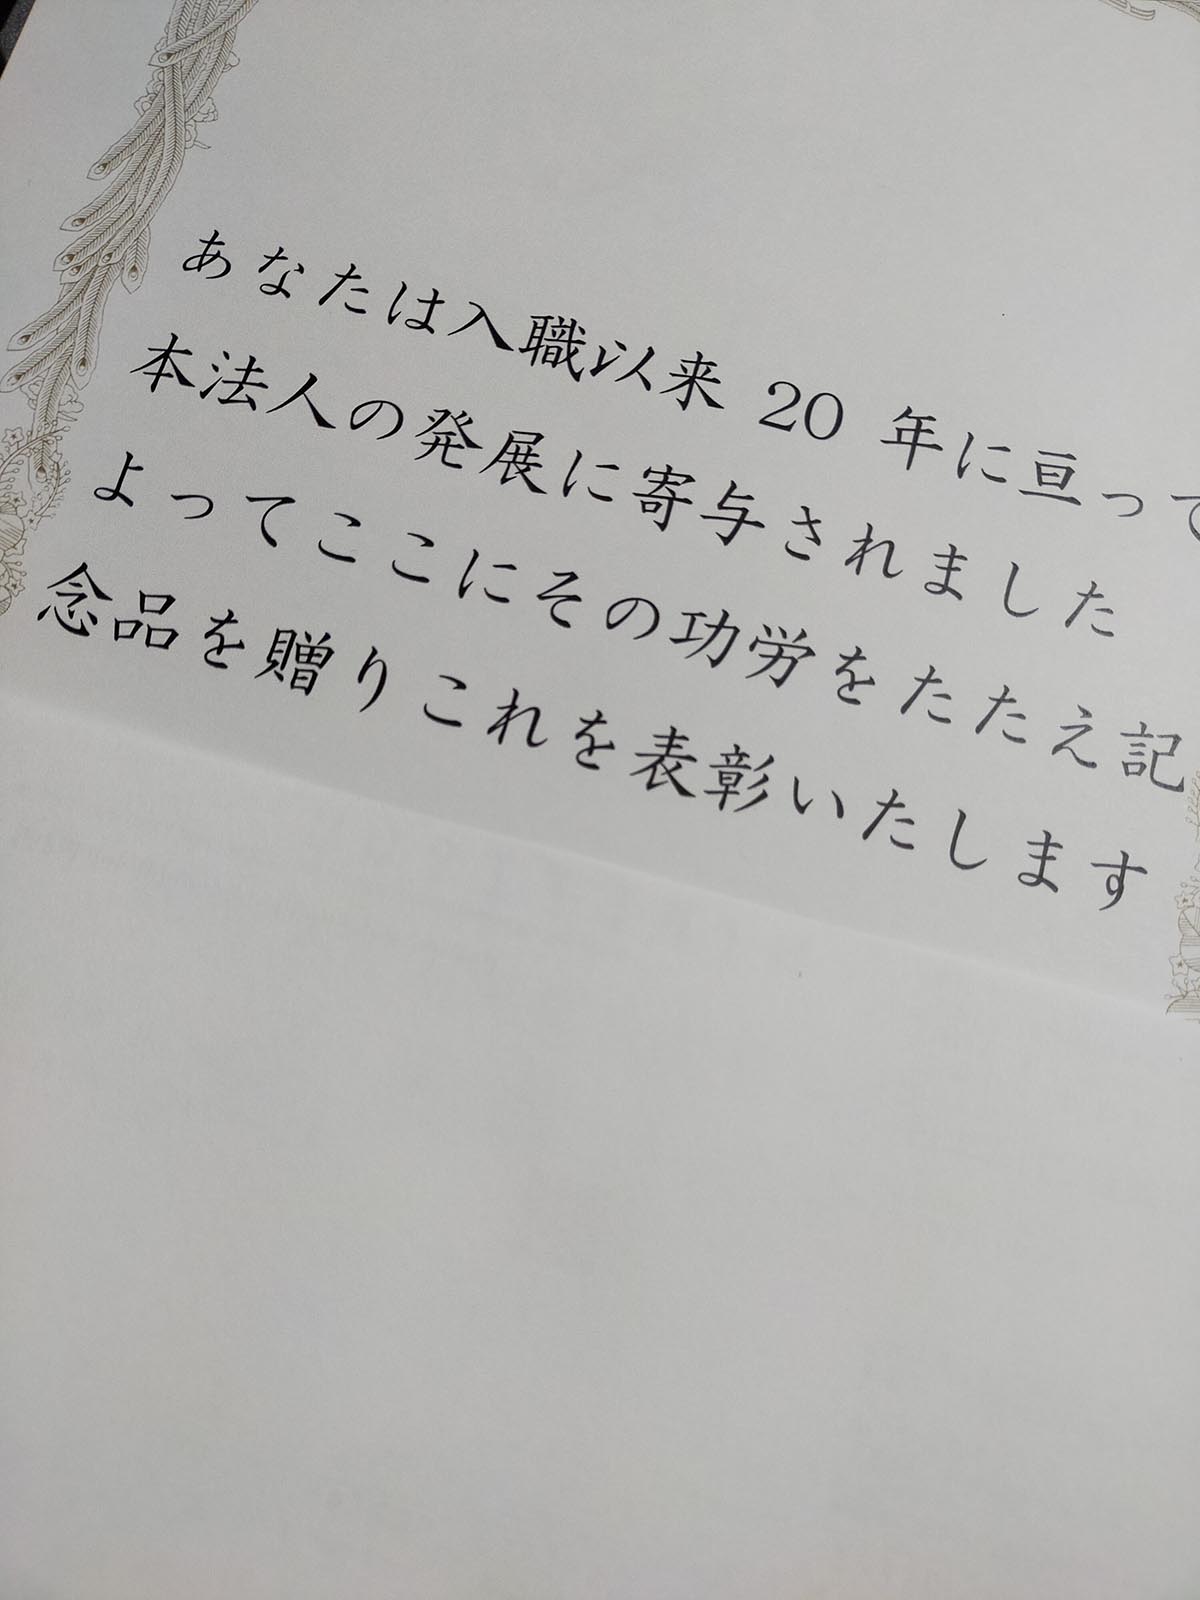 あなたは入職以来 20 年に亘って
本法人の発展に寄与されました
よってここにその功労をたたえ記
念品を贈りこれを表彰いたします